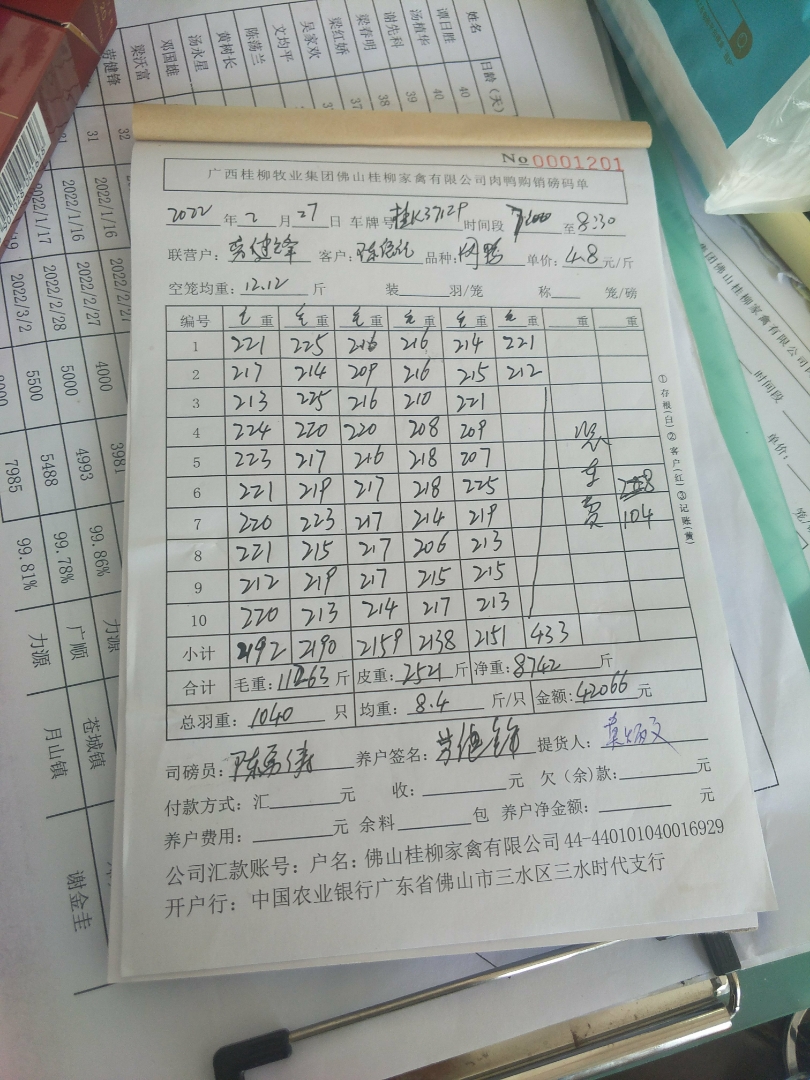 No 0001201
广西桂柳牧业集团佛山桂柳家禽有限公司肉鸭购销磅码单
2022 年 2 月 27 日 车牌号 桂K37129 时间段 至 8:30
联营户: 劳健锋 客户: 品种: 单价: 4.8 元/斤
空笼均重: 12.12 斤 装 羽/笼 称 笼/磅
编号 毛重 毛重 毛重 毛重 毛重 毛重 重 重
1 221 225 216 216 214 221
2 217 214 209 216 215 212
3 213 225 216 210 221
4 224 220 220 208 209
5 223 217 216 218 207
6 221 219 217 218 225
7 220 223 217 214 219 104
8 221 215 217 206 213
9 212 219 217 215 215
10 220 213 214 217 213
小计 2192 2190 2159 2138 2151 433
合计 毛重: 11263 斤 皮重: 2521 斤 净重: 8742 斤
总羽重: 1040 只 均重: 8.4 斤/只 金额: 42066 元
司磅员: 养户签名: 劳健锋 提货人:
付款方式: 汇 元 收: 元 欠(余)款: 元
养户费用: 元 余料 包 养户净金额: 元
公司汇款账号: 户名: 佛山桂柳家禽有限公司 44-440101040016929
开户行: 中国农业银行广东省佛山市三水区三水时代支行
①存根(白)②客户(红)③记账(黄)
姓名 谭日胜 汤植华 谢先科 梁春明 梁红娇 吴家欢 文均平 陈荡兰 黄树长 汤永星 邓国雄 梁沃富 劳健锋
日龄(天) 40 40 39 38 37
32 2022/1/16
31 2022/1/16 2022/2/27 4000 3981
2022/1/17 2022/2/28 5000 4993 99.86% 力源
2022/3/2 5500 5488 99.78% 广顺 苍城镇
7985 99.81% 力源 月山镇 谢金圭
时间段
单价: